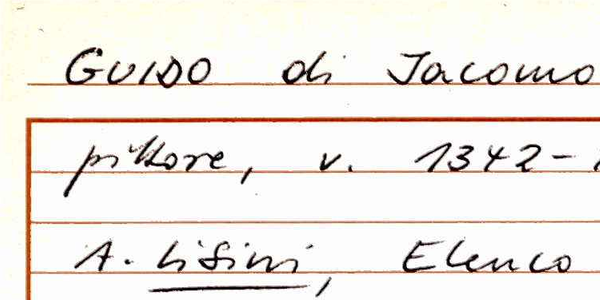 GUIDO di Jacomo
pittore, v. 1342-
A. Lisini, Elenco